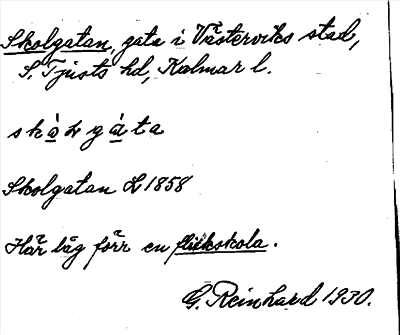 Skolgatan, gata i Västerviks stad,
S. Tjusts hd, Kalmar l.
Skolgatan L 1858
Här låg förr en flickskola.
G. Reinhard 1930.